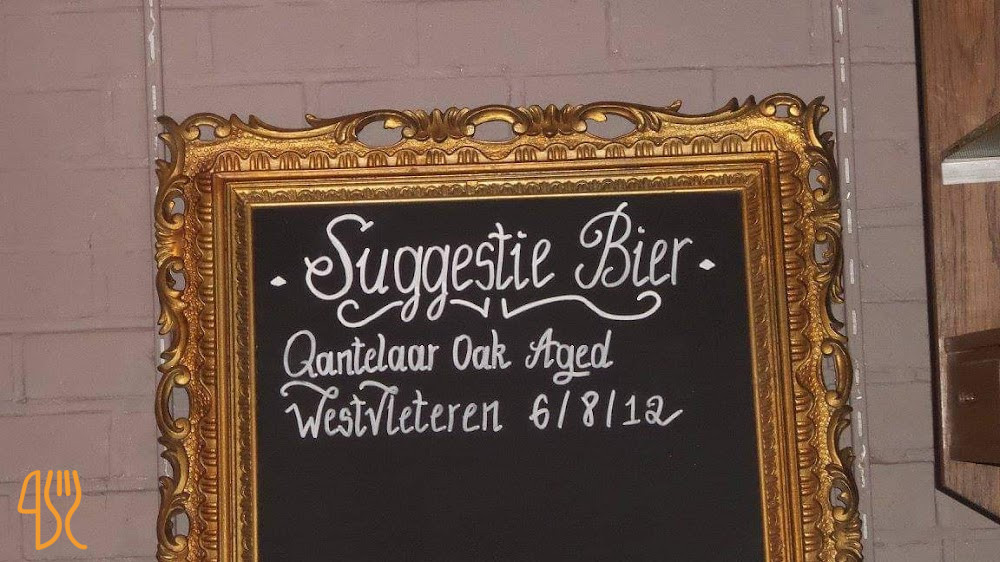 Suggestie Bier
Qantelaar Oak Aged
Westvleteren 6/8/12